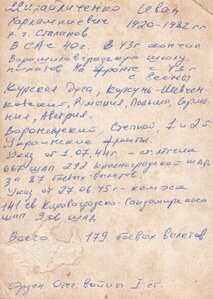 Михайличенко Иван
Харлампиевич 1920-1982 гг
р. г. Стаханов
В СА с 40г. В 43г окончил
Ворошиловградскую школу
пилотов На фронте с 43
с весны
Курская Дуга, Корсунь-Шевчен-
ковский, Румыния, Польша, Герма-
ния, Австрия.
Воронежский, Степной, 1 и 2й
Украинские фронты.
Указ от 1.07.44г -
667 ШАП 292 Красноградской ШАД
за 87 боевых вылетов.
Указ от 27.06.45г - комэска
141 гв Кировоградско-Сандомирского
ШАП 9 гв ШАД
Всего 179 боевых вылетов
Орден Отеч. войны I ст.